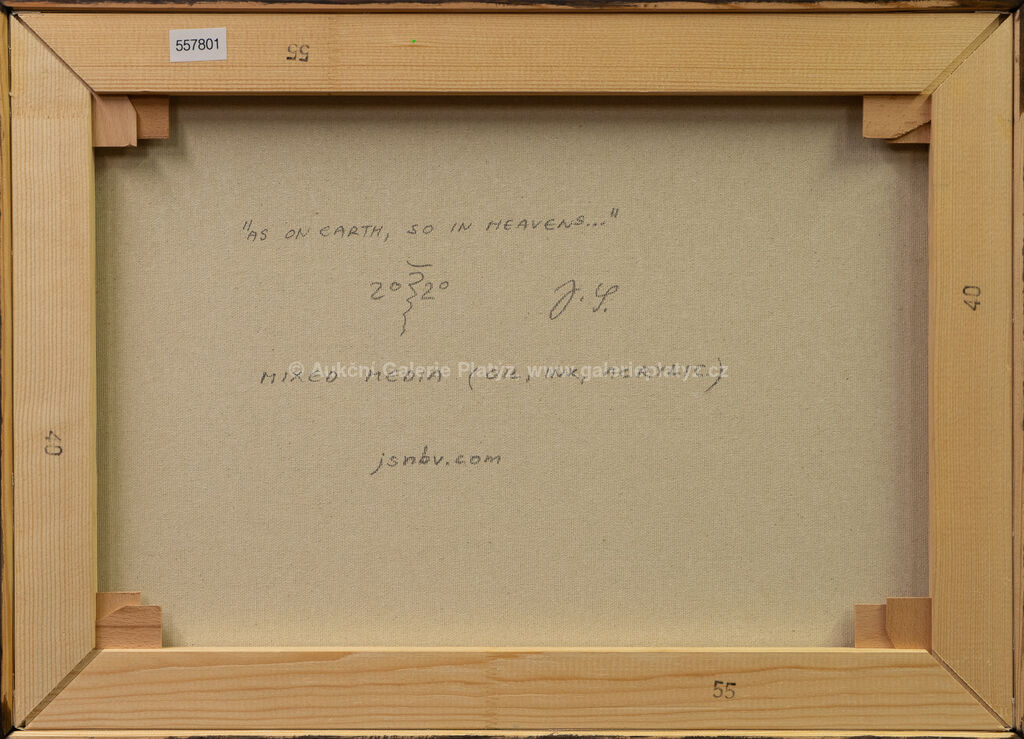 557801
55
"AS ON EARTH, SO IN HEAVENS..."
20 20
J.S.
40
© Aukční Galerie Platýz, www.galerieplatyz.cz
MIXED MEDIA (OIL, INK, ACRYLIC)
40
jsnbv.com
55